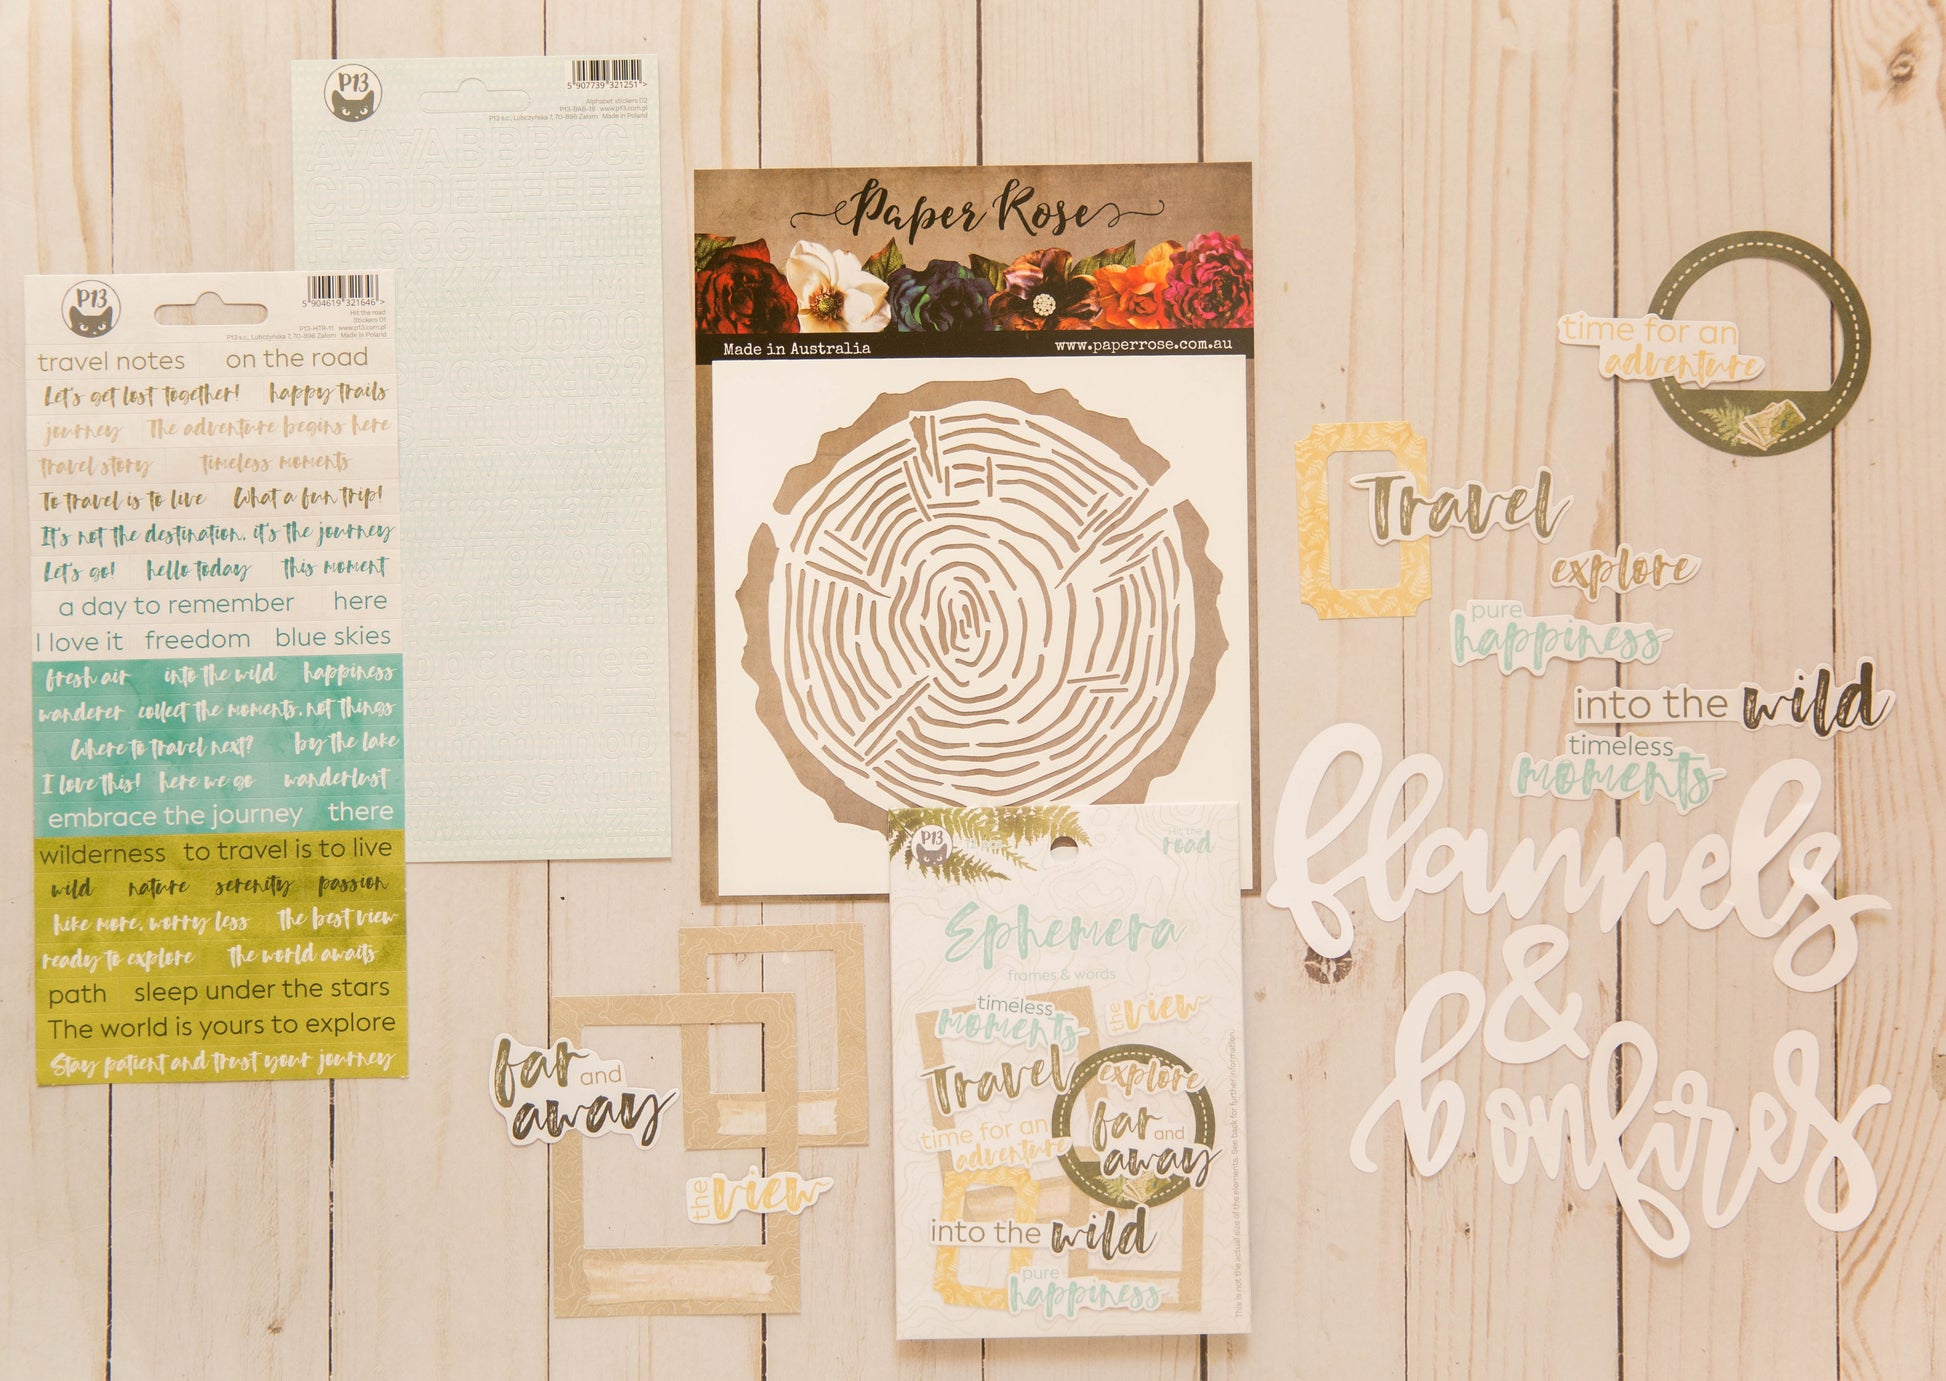 P13
5 907739 321251 >
Alphabet stickers 02
P13-BAB-18 www.p13.com.pl
P13 s.c., Lubczyńska 7, 70-896 Załom Made in Poland
AAAAABBBBCC
CDDDEEEEEEF
P13
5 904619 321646 >
Hit the road
Stickers 01
P13-HTR-11 www.p13.com.pl
P13 s.c., Lubczyńska 7, 70-896 Załom Made in Poland
travel notes on the road
Let's get lost together! happy trails
journey The adventure begins here
travel story timeless moments
To travel is to live What a fun trip!
It's not the destination, it's the journey
Let's go! hello today this moment
a day to remember here
I love it freedom blue skies
fresh air into the wild happiness
wanderer collect the moments, not things
Where to travel next? by the lake
I love this! here we go wanderlust
embrace the journey there
wilderness to travel is to live
wild nature serenity passion
hike more, worry less the best view
ready to explore the world awaits
path sleep under the stars
The world is yours to explore
Stay patient and trust your journey
Paper Rose
Made in Australia www.paperrose.com.au
time for an
adventure
Travel
explore
pure
happiness
into the wild
timeless
moments
flannels
&
bonfires
far and
away
the view
P13
Hit the
road
Ephemera
frames & words
timeless
moments
the view
Travel
explore
far and
away
time for an
adventure
into the wild
pure
happiness
This is not the actual size of the elements. See back for further information.